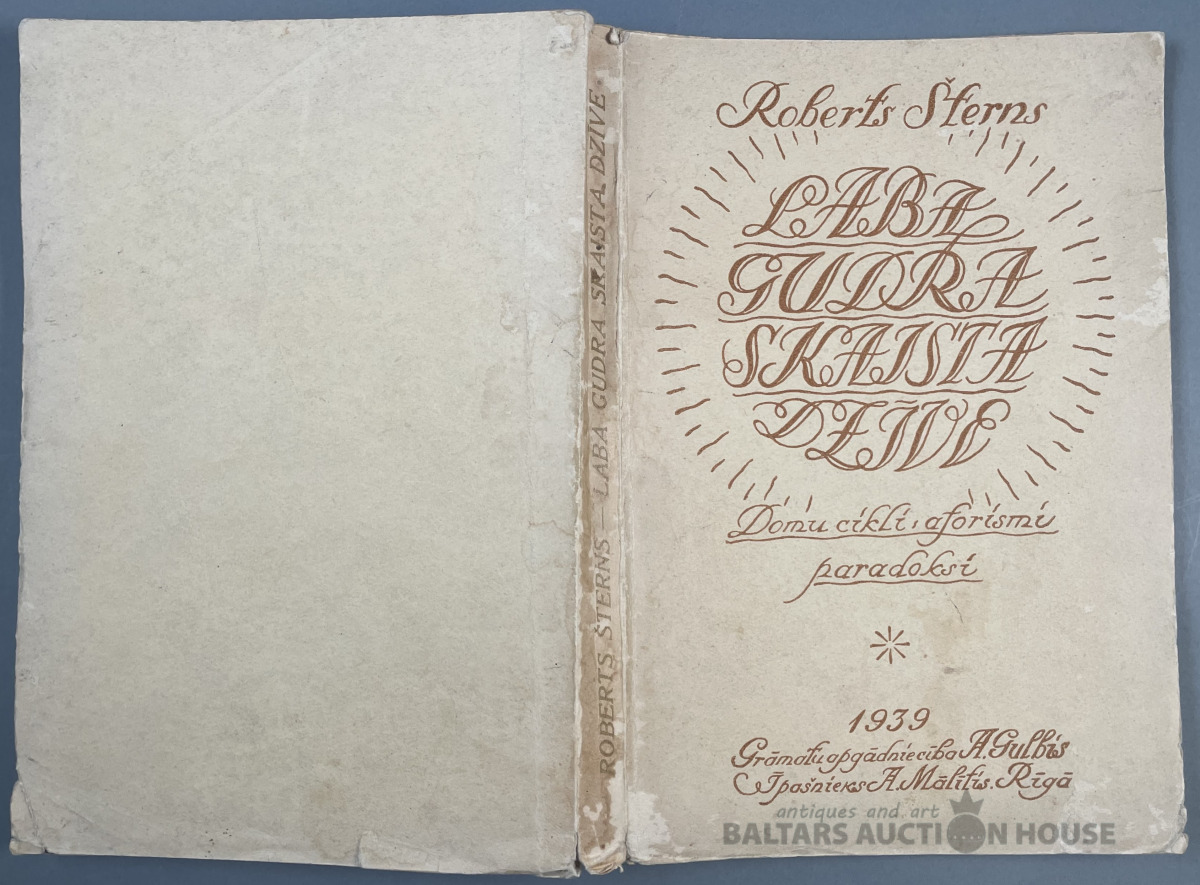 ROBERTS ŠTERNS — LABA GUDRA SKAISTA DZĪVE
Roberts Šterns
LABA
GUDRA
SKAISTA
DZĪVE
Domu cikli, aforismi
paradoksi
1939
Grāmatu apgādniecība A. Gulbis
Īpašnieks A. Mālītis. Rīgā
antiques and art
BALTARS AUCTION HOUSE